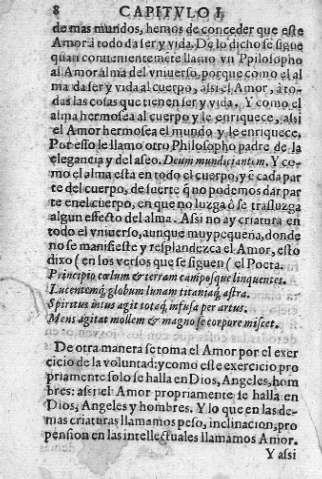 8 CAPITVLO I,
de mas mundos, hemos de conceder que este
Amor à todo da ser y vida. De lo dicho se sigue
quan conuenientemete llamo vn Ppilosopho
al Amor alma del vniuerso, porque como el al
ma da ser y vida al cuerpo, assi el Amor, à to-
das las cosas que tienen ser y vida. Y como el
alma hermosea al cuerpo y le enriquece, assi
el Amor hermosea el mundo y le enriquece.
Por esso le llamo otro Philosopho padre de la
elegancia y del aseo. Deum mundiciantem. Y co-
mo el alma està en todo el cuerpo, y é cada par
te del cuerpo, de suerte q̃ no podemos dar par
te en el cuerpo, en que no luzga ò se trasluzga
algun effecto del alma. Assi no ay criatura en
todo el vniuerso, aunque muy pequeña, donde
no se manifieste y resplandezca el Amor, esto
dixo ( en los versos que se siguen ( el Poeta.
Principio cœlum & terram camposque linquentes.
Lucentemq́; globum lunam titaniaq́; astra.
Spiritus intus agit totaq́; infusa per artus.
Mens agitat mollem & magno se corpore miscet.
De otra manera se toma el Amor por el exer
cicio de la voluntad: y como este exercicio pro
priamente solo se halla en Dios, Angeles, hom
bres: assi el Amor propriamente se halla en
Dios, Angeles y hombres. Y lo que en las de-
mas criaturas llamamos peso, inclinacion, pro
pension en las intellectuales llamamos Amor.
Y assi